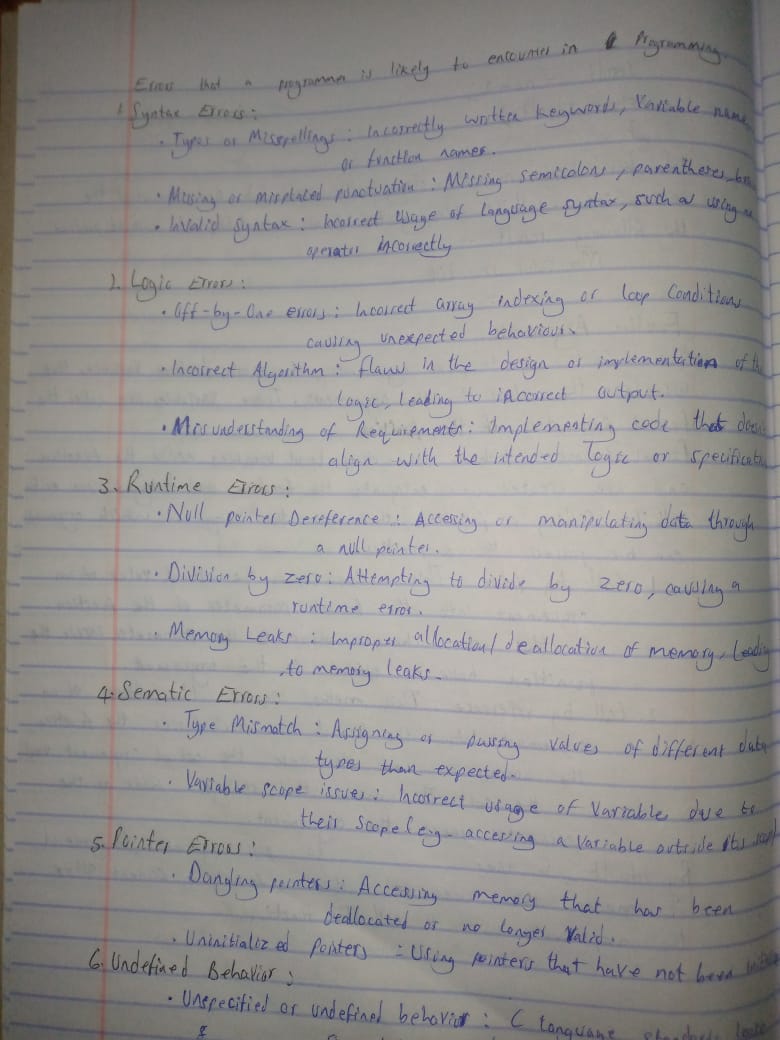 Errors that a programmer is likely to encounter in C Programming.
1. Syntax Errors:
• Typos or Misspellings: Incorrectly written keywords, Variable name
or function names.
• Missing or misplaced punctuation: Missing semicolons, parentheses,
• Invalid Syntax: Incorrect usage of language syntax, such as using
operator incorrectly
2. Logic Errors:
• Off-by-One errors: Incorrect array indexing or loop Conditions
causing unexpected behaviour.
• Incorrect Algorithm: flaws in the design or implementation of
logic, leading to incorrect output.
• Misunderstanding of Requirements: Implementing code that
align with the intended logic or
3. Runtime Errors:
• Null pointer Dereference: Accessing or manipulating data through
a null pointer.
• Division by zero: Attempting to divide by zero, causing a
runtime error.
• Memory Leaks: Improper allocation/deallocation of memory,
to memory leaks.
4. Sematic Errors:
• Type Mismatch: Assigning or passing values of different data
types than expected.
• Variable scope issues: Incorrect usage of Variable due to
their scope (eg- accessing a Variable outside its
5. Pointer Errors:
• Dangling pointers: Accessing memory that has been
deallocated or no longer Valid.
• Uninitialized pointers: Using pointers that have not been
6. Undefined Behavior:
• Unspecified or undefined behavior: C language